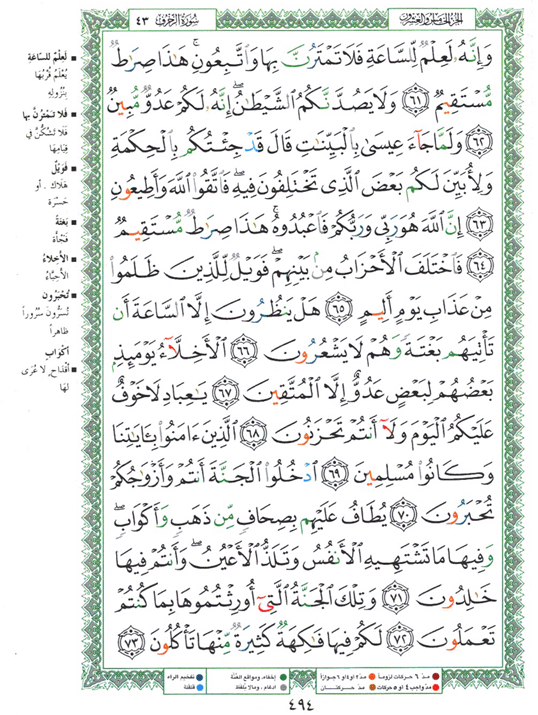 الجزء الخامس والعشرون
سورة الزخرف ٤٣
وَإِنَّهُۥ لَعِلْمٌ لِّلسَّاعَةِ فَلَا تَمْتَرُنَّ بِهَا وَٱتَّبِعُونِ ۚ هَٰذَا صِرَٰطٌ
مُّسْتَقِيمٌ ٦١ وَلَا يَصُدَّنَّكُمُ ٱلشَّيْطَٰنُ ۖ إِنَّهُۥ لَكُمْ عَدُوٌّ مُّبِينٌ
٦٢ وَلَمَّا جَآءَ عِيسَىٰ بِٱلْبَيِّنَٰتِ قَالَ قَدْ جِئْتُكُم بِٱلْحِكْمَةِ
وَلِأُبَيِّنَ لَكُم بَعْضَ ٱلَّذِى تَخْتَلِفُونَ فِيهِ ۖ فَٱتَّقُوا۟ ٱللَّهَ وَأَطِيعُونِ
٦٣ إِنَّ ٱللَّهَ هُوَ رَبِّى وَرَبُّكُمْ فَٱعْبُدُوهُ ۚ هَٰذَا صِرَٰطٌ مُّسْتَقِيمٌ
٦٤ فَٱخْتَلَفَ ٱلْأَحْزَابُ مِنۢ بَيْنِهِمْ ۖ فَوَيْلٌ لِّلَّذِينَ ظَلَمُوا۟
مِنْ عَذَابِ يَوْمٍ أَلِيمٍ ٦٥ هَلْ يَنظُرُونَ إِلَّا ٱلسَّاعَةَ أَن
تَأْتِيَهُم بَغْتَةً وَهُمْ لَا يَشْعُرُونَ ٦٦ ٱلْأَخِلَّآءُ يَوْمَئِذٍۭ
بَعْضُهُمْ لِبَعْضٍ عَدُوٌّ إِلَّا ٱلْمُتَّقِينَ ٦٧ يَٰعِبَادِ لَا خَوْفٌ
عَلَيْكُمُ ٱلْيَوْمَ وَلَآ أَنتُمْ تَحْزَنُونَ ٦٨ ٱلَّذِينَ ءَامَنُوا۟ بِـَٔايَٰتِنَا
وَكَانُوا۟ مُسْلِمِينَ ٦٩ ٱدْخُلُوا۟ ٱلْجَنَّةَ أَنتُمْ وَأَزْوَٰجُكُمْ
تُحْبَرُونَ ٧٠ يُطَافُ عَلَيْهِم بِصِحَافٍ مِّن ذَهَبٍ وَأَكْوَابٍ ۖ
وَفِيهَا مَا تَشْتَهِيهِ ٱلْأَنفُسُ وَتَلَذُّ ٱلْأَعْيُنُ ۖ وَأَنتُمْ فِيهَا
خَٰلِدُونَ ٧١ وَتِلْكَ ٱلْجَنَّةُ ٱلَّتِىٓ أُورِثْتُمُوهَا بِمَا كُنتُمْ
تَعْمَلُونَ ٧٢ لَكُمْ فِيهَا فَٰكِهَةٌ كَثِيرَةٌ مِّنْهَا تَأْكُلُونَ ٧٣
■ لَعِلْمٌ لِلسَّاعَةِ
يُعْلَمُ قُرْبُهَا
بِنُزُولِهِ
■ فَلا تَمْتَرُنَّ بِهَا
فَلا تَشُكُّنَّ فِي
قِيَامِهَا
■ فَوَيْلٌ
هَلاك ، أو
حَسْرَة
■ بَغْتَةً
فَجْأَة
■ الأخِلاءُ
الأحِبَّاءُ
■ تُحْبَرُون
تُسَرُّونَ سُرُوراً
ظاهراً
أكْوَابٍ
■ أقْدَاح لا عُرَى
لهَا
مدّ ٦ حركات لزوماً
مدّ ٢ أو ٤ أو ٦ جوازاً
مدّ واجب ٤ أو ٥ حركات
مدّ حركتان
إخفاء، ومواقع الغنّة
ادغام، وما لا يلفظ
تفخيم الراء
قلقلة
٤٩٤